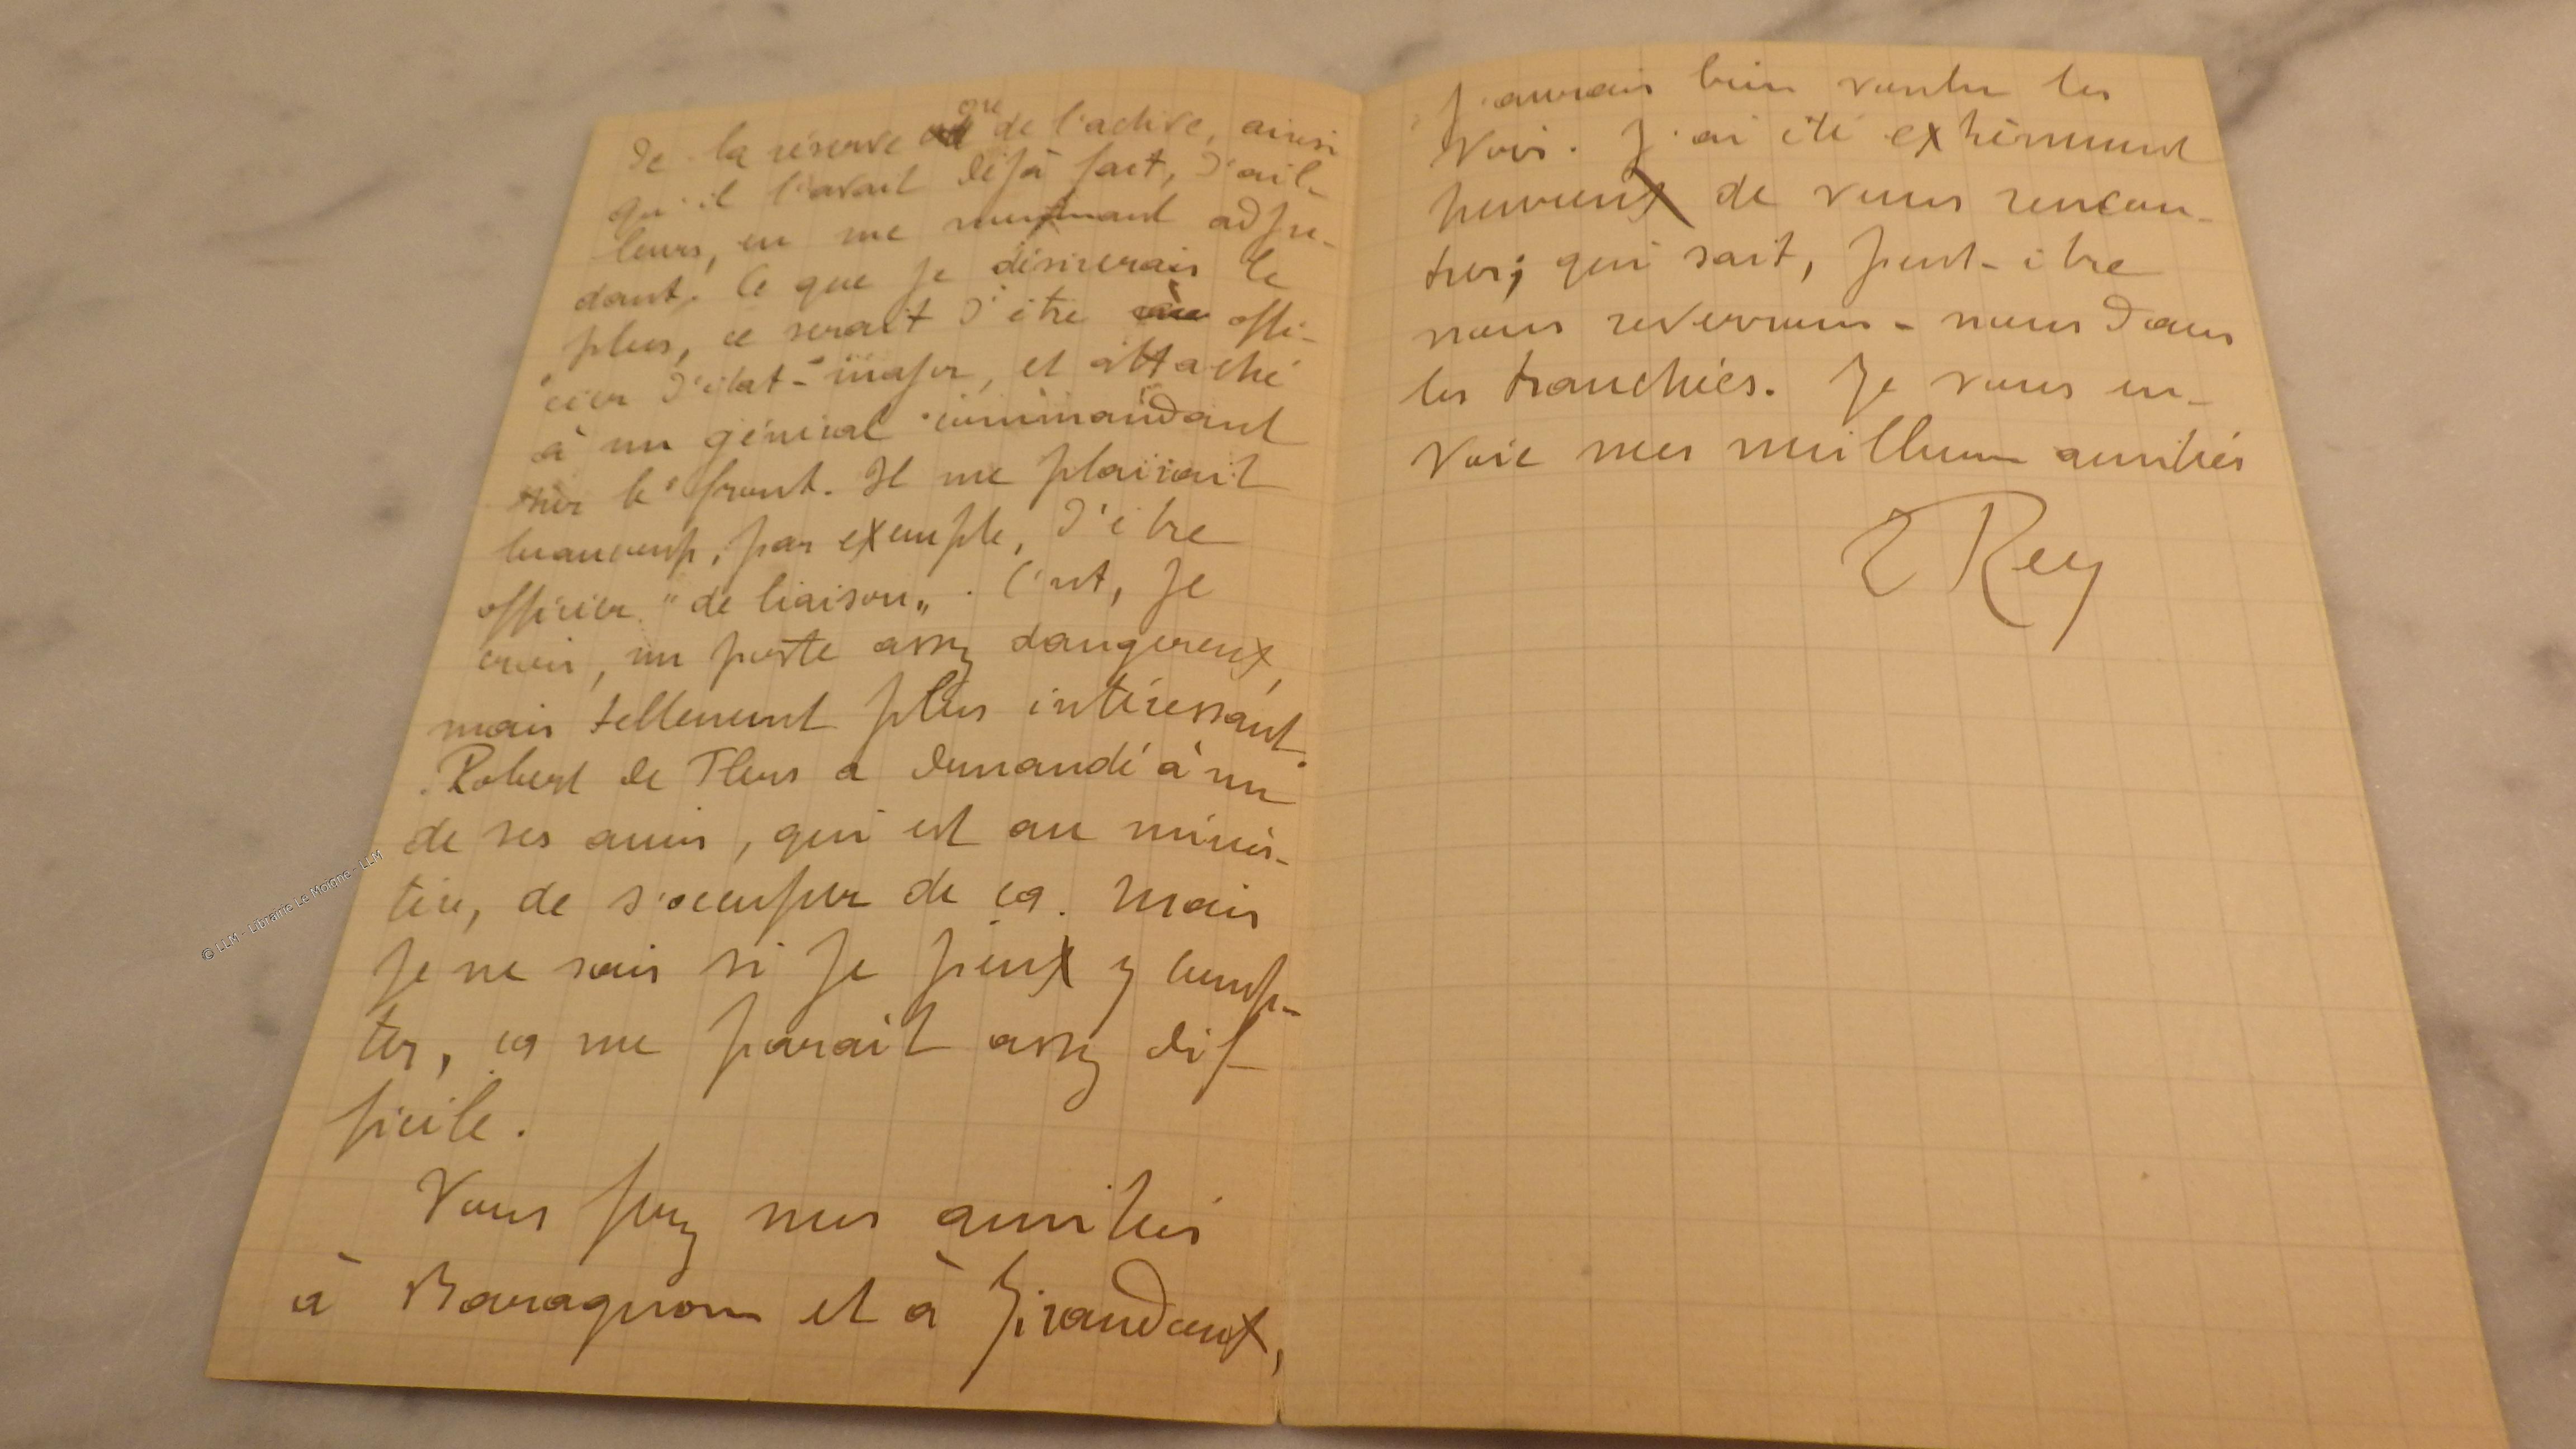 de la réserve que de l'active, ainsi
qu'il l'avait déjà fait, d'ail-
leurs, en me nommant adju-
dant. Ce que je désirerais le
plus, ce serait d'être offi-
cier d'état-major, et attaché
à un général commandant
sur le front. Il me plairait
beaucoup, par exemple, d'être
officier "de liaison„. C'est, je
crois, un poste assez dangereux,
mais tellement plus intéressant.
Robert de Flers a demandé à un
de ses amis, qui est au minis-
tère, de s'occuper de ça. Mais
je ne sais si je peux y comp-
ter, ça me parait assez dif
ficile.
Vous ferez mes amitiés
à Baragnon et à Giraudoux,
j'aurais bien voulu les
voir. J'ai été extrêmement
heureux de vous rencon-
trer; qui sait, peut-être
nous reverrons-nous dans
les tranchées. Je vous en-
voie mes meilleures amitiés
E Rey
© LLM - Librairie Le Moigne - LLM